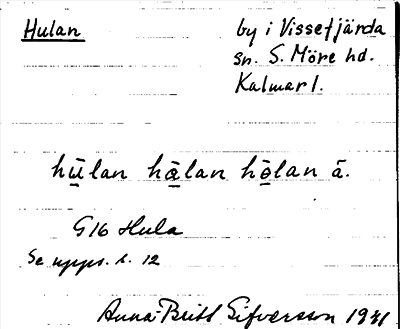 Hulan by i Vissefjärda
sn. S. Möre hd.
Kalmar l.
hūlan hālan hōlan ā.
G16 Hula
Se upps. s. 12
Anna-Britt Sifversson 1971